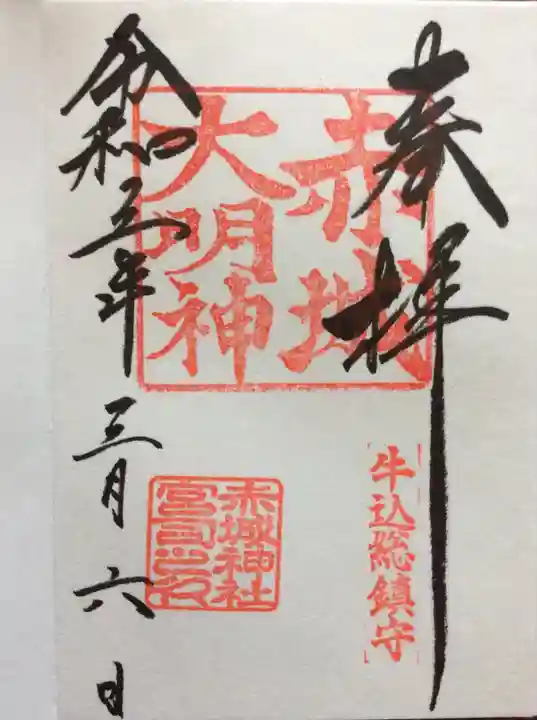 奉拝
赤城
大明神
牛込総鎮守
赤城神社
宮司之印
令和三年三月六日